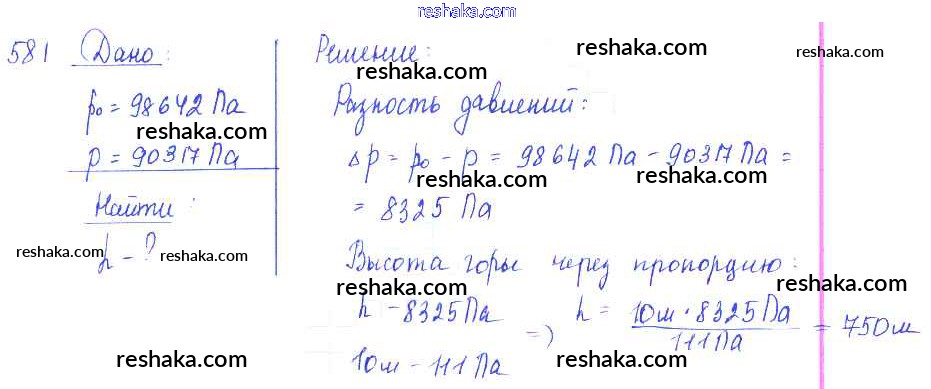 reshaka.com
581 Дано:
p₀ = 98642 Па
reshaka.com
p = 90317 Па
reshaka.com
Найти:
h - ?
reshaka.com
reshaka.com
reshaka.com
Решение:
reshaka.com
reshaka.com
Разность давлений:
reshaka.com
Δp = p₀ - p = 98642 Па - 90317 Па =
reshaka.com
reshaka.com
= 8325 Па
reshaka.com
Высота горы через пропорцию:
reshaka.com
reshaka.com
h - 8325 Па
10 м - 111 Па
=> h = 10 м · 8325 Па / 111 Па = 750 м
reshaka.com
reshaka.com